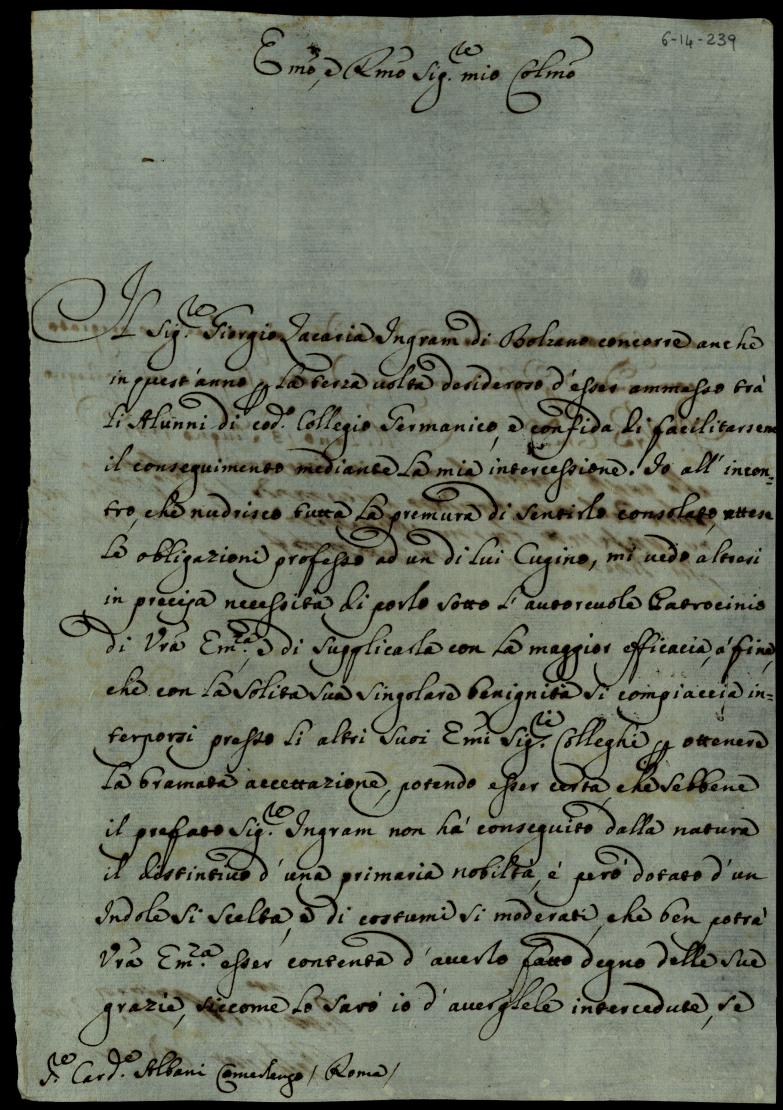 6-14-239
Emo, e Rmo Sig.re mio Colmo
Il Sig.re Giorgio Zacaria Ingram di Bolzano concorre anche
in quest'anno p la terza volta desideroso d'esser ammesso trà
li Alunni di cod.o Collegio Germanico, e confida di facilitarsene
il conseguimento mediante la mia intercessione. Io all'incon=
tro, che nudrisco tutta la premura di sentirlo consolato, attese
le obligazioni professo ad un di lui Cugino, mi vedo altresi
in precisa necessità di porlo sotto l'autorevole Patrocinio
di Vrã Em.za, e di supplicarla con la maggior efficacia, à fine,
che con la solita sua singolare benignità si compiaccia in=
terporsi presso li altri suoi Emi Sig.ri Colleghi p ottenere
la bramata accettazione, potendo esser certa, che sebbene
il prefato Sig.re Ingram non hà conseguito dalla natura
il distintivo d'una primaria nobiltà, è però dotato d'un
Indole si scelta, e di costumi si moderati, che ben potrà
Vrã Em.za esser contenta d'averlo fatto degno delle sue
grazie, siccome lo sarò io d'averglele intercedute, se
S.re Card.le Albani Camerlengo / Roma /